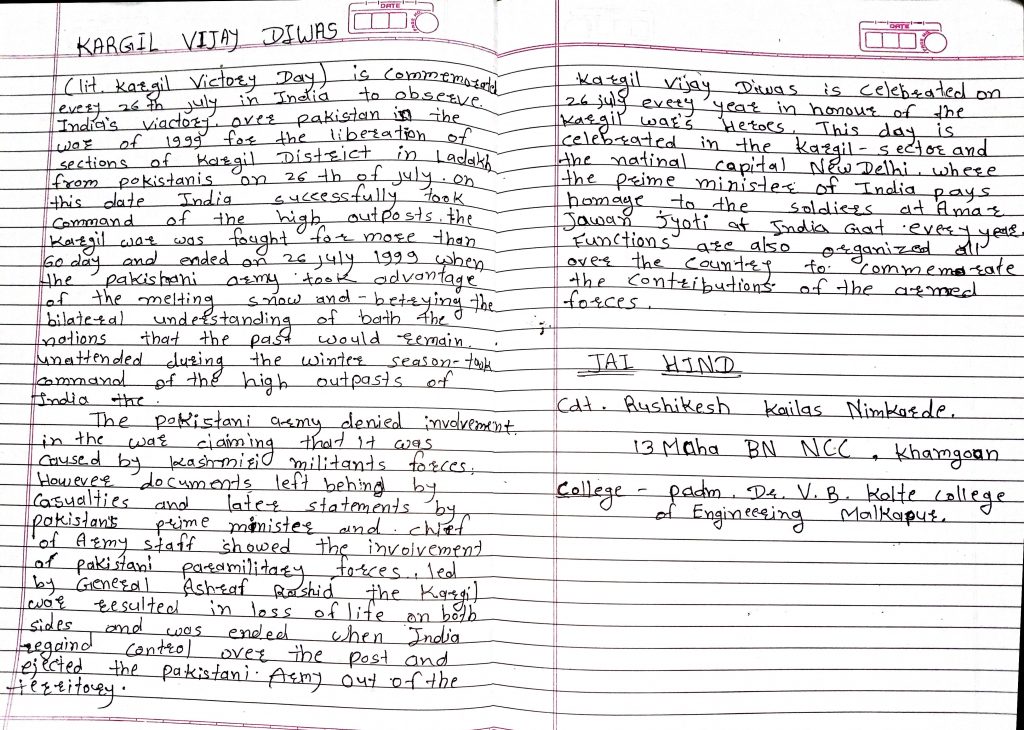 DATE
KARGIL VIJAY DIWAS
(lit. Kargil Victory Day) is commemorated
every 26 th july in India to observe
India's viactory. over pakistan in the
war of 1999 for the liberation of
sections of Kargil District in Ladakh
from pokistanis on 26 th of july. on
this date India successfully took
command of the high outposts. the
Kargil war was fought for more than
60 day and ended on 26 july 1999 when
the pakistani army took advantage
of the melting snow and - betrying the
bilateral understanding of bath the
nations that the past would remain.
unattended during the winter season - took
command of the high outpasts of
India the.
The pakistani army denied involvement.
in the war claiming that it was
caused by kashmiri militants forces.
However documents left behing by
casualties and later statements by
pakistan's prime minister and chief
of Army staff showed the involvement
of pakistani paramilitary forces, led
by General Ashraf Rashid the Kargil
war resulted in loss of life on both
sides and was ended when India
regaind control over the post and
ejected the pakistani. Army out of the
territory.
DATE
Kargil Vijay Diwas is celebrated on
26 july every year in honour of the
Kargil war's Heroes. This day is
celebrated in the Kargil - sector and
the natinal capital New Delhi. where
the prime minister of India pays
homage to the soldiers at Amar
Jawan jyoti at India Gat. every year.
Functions are also organized all
over the country to commemorate
the contributions of the armed
forces.
JAI HIND
Cdt. Rushikesh Kailas Nimkarde.
13 Maha BN NCC, Khamgoan
College - padm. Dr. V. B. Kolte college
of Engineering Malkapur.